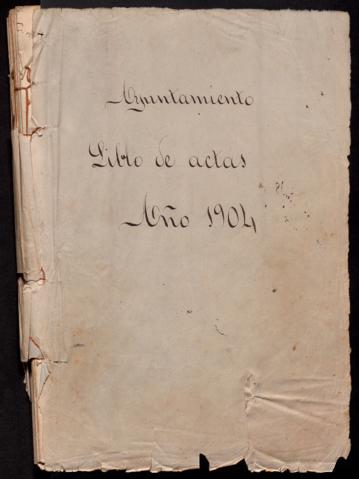 Ayuntamiento
Libro de actas
Año 1904